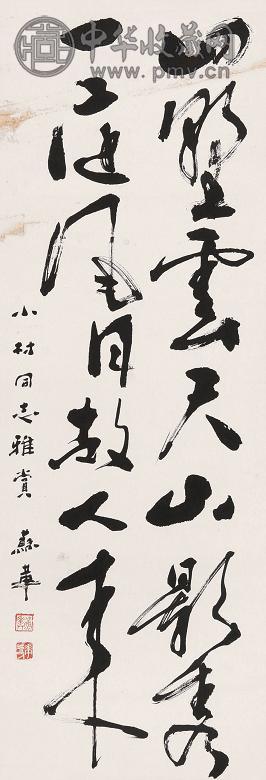 中华收藏网
www.pmv.cn
四壁雲天山影秀
一庭風月故人來
小村同志雅賞 蘇華